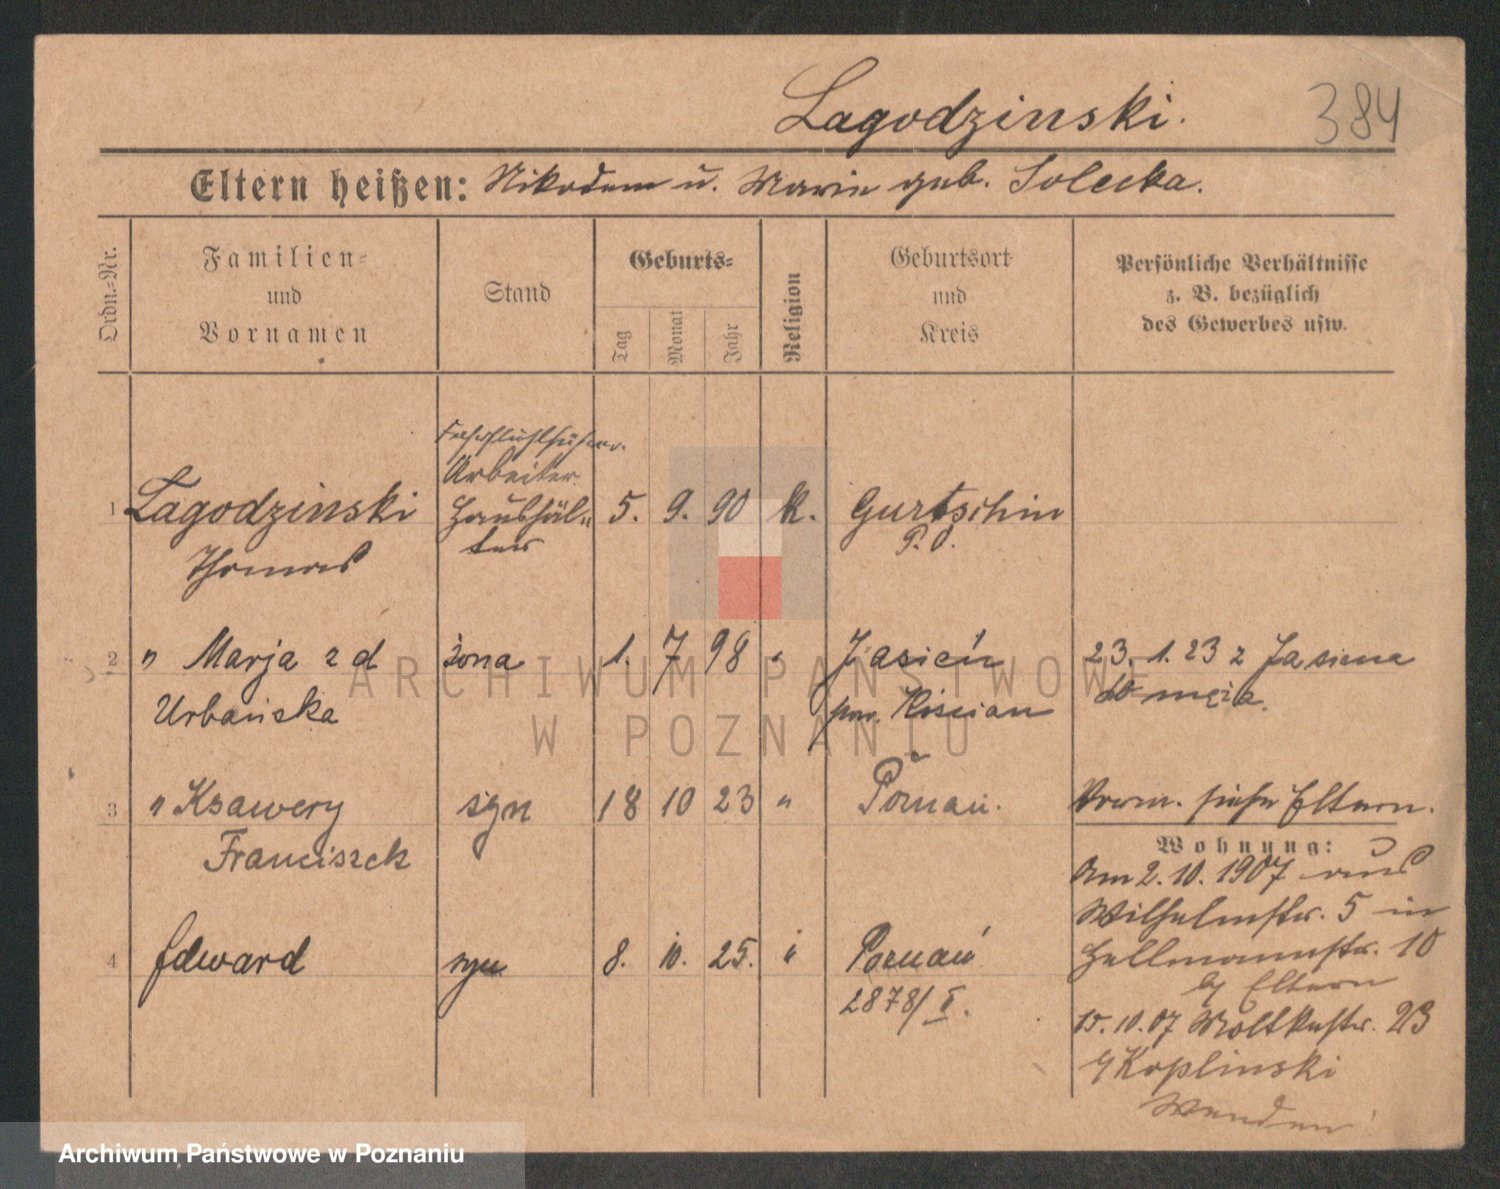 Lagodzinski.
384
Eltern heißen: Nikodem u. Marie geb. Solecka.
Ordn.-Nr.
Familien-
und
Vornamen
Stand
Geburts-
Tag
Monat
Jahr
Religion
Geburtsort
und
Kreis
Persönliche Verhältnisse
z. B. bezüglich
des Gewerbes usw.
Arbeiter
1 Lagodzinski Haushäl- 5. 9. 90 k. Gurtschin
Thomas ter P. O.
2 " Marja z d żona 1. 7 98 " Jasień 23. 1. 23 z Jasiena
Urbańska pow. Kościan do męża.
3 " Ksawery syn 18 10 23 " Poznań. Vorm. siehe Eltern.
Franciszek
Wohnung:
Am 2. 10. 1907 aus
Wilhelmstr. 5 in
4 Edward syn 8. 10. 25. " Poznań Hellmannstr. 10
b/ Eltern
2878/II.
15. 10. 07 Moltkestr. 23
b/ Koplinski
Wenden
ARCHIWUM PAŃSTWOWE
W POZNANIU
Archiwum Państwowe w Poznaniu